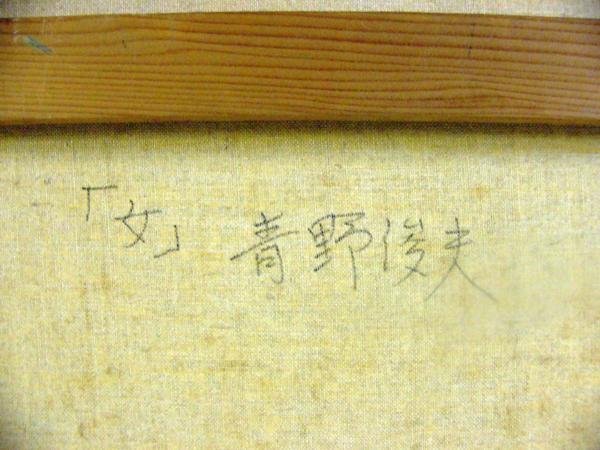 「女」 青野俊夫